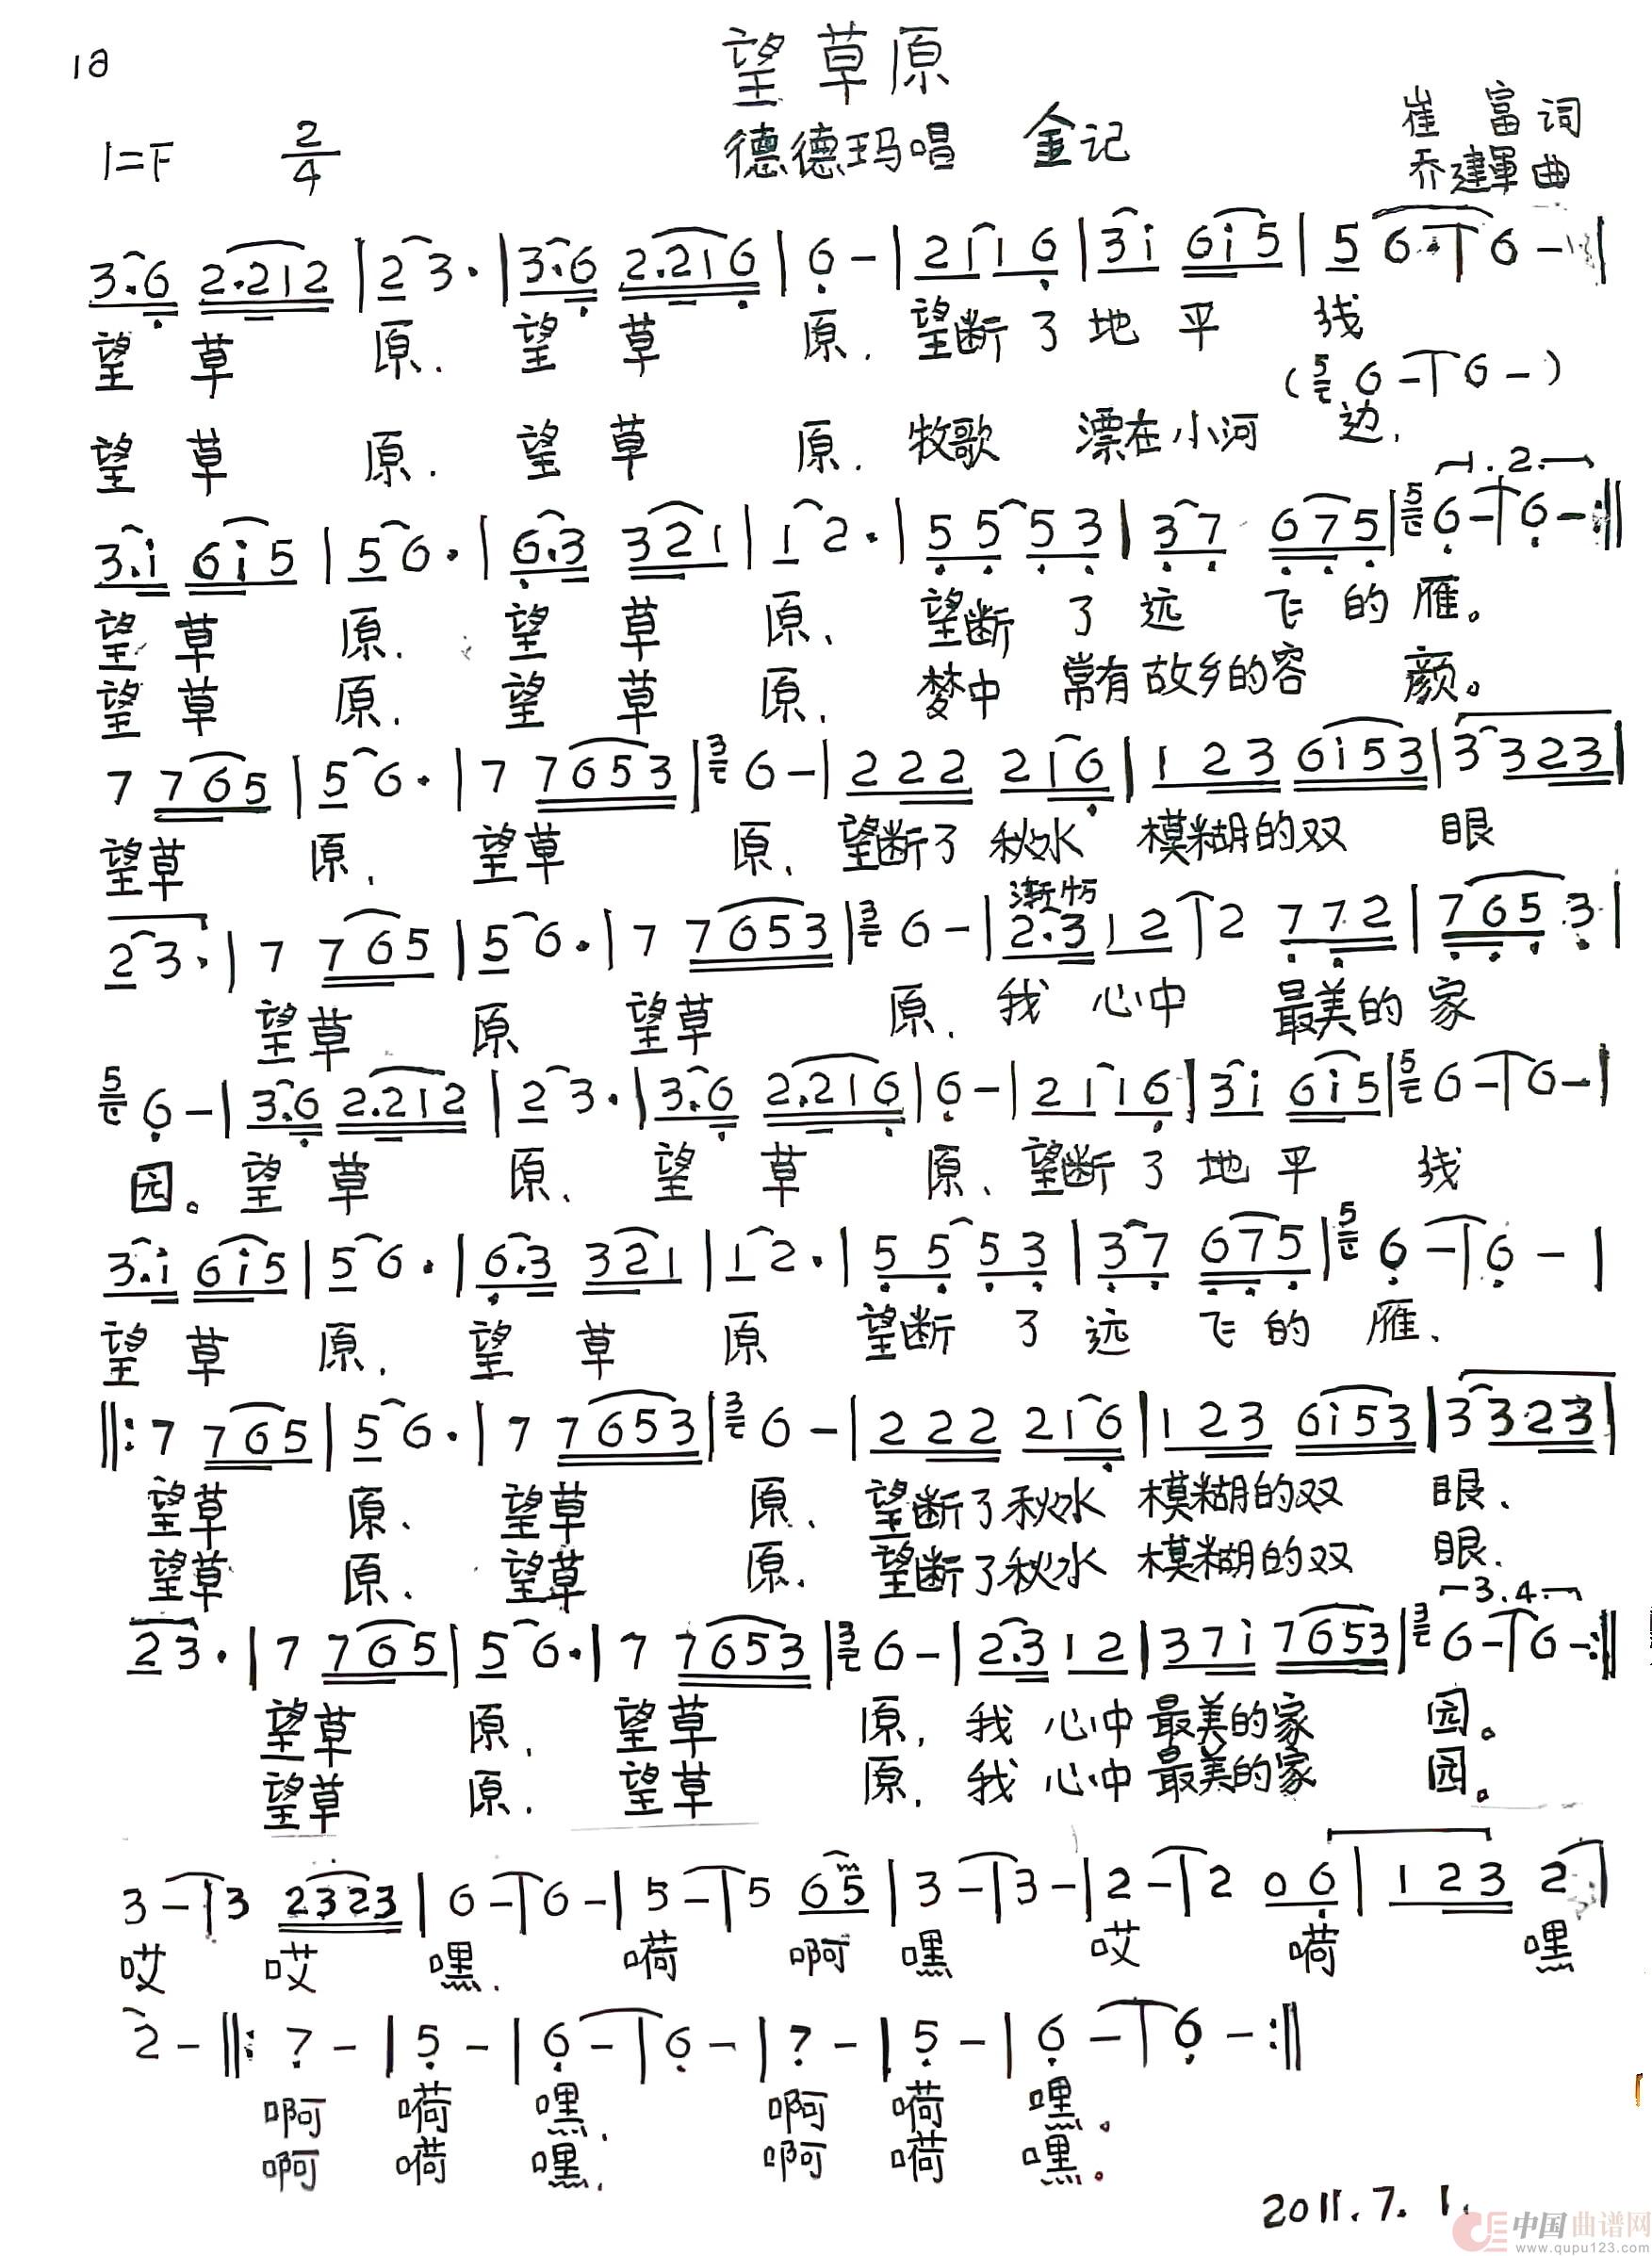 18
望草原
1=F 2/4 德德玛唱 金记 崔富词
乔建軍曲
3.6 2.212 | 2 3. | 3.6 2.216 | 6 - | 2116 | 3i 6i5 | 5 6 - | 6 - |
望 草 原. 望 草 原. 望断了地平 线
(5 6 - | 6 -)
望 草 原. 望 草 原. 牧歌 漂在小河 边.
1.2.
3.i 6i5 | 5 6. | 6.3 321 | 1 2. | 55 53 | 37 675 | 5 6 - | 6 - :||
望 草 原. 望 草 原、 望断 了 远 飞 的 雁。
望 草 原. 望 草 原. 梦中 常有故乡的容 颜。
7 765 | 5 6. | 7 7653 | 3 6 - | 222 216 | 123 6i53 | 3 323 |
望草 原. 望草 原. 望断了 秋水 模糊的双 眼
渐慢
2 3. | 7 765 | 5 6. | 7 7653 | 3 6 - | 2.3 12 | 2 772 | 765 3 |
望草 原 望草 原. 我 心中 最美的 家
5 6 - | 3.6 2.212 | 2 3. | 3.6 2.216 | 6 - | 21 16 | 3i 6i5 | 5 6 - | 6 - |
园。望 草 原. 望 草 原、望断 了 地 平 线
3.i 6i5 | 5 6. | 6.3 321 | 1 2. | 55 53 | 37 675 | 5 6 - | 6 - |
望 草 原. 望 草 原 望断 了 远 飞 的 雁.
||: 7 765 | 5 6. | 7 7653 | 3 6 - | 222 216 | 123 6i53 | 3 323 |
望草 原. 望草 原. 望断了秋水 模糊的双 眼.
望草 原. 望草 原. 望断了秋水 模糊的双 眼.
3.4.
2 3. | 7 765 | 5 6. | 7 7653 | 3 6 - | 2.3 12 | 37i 7653 | 3 6 - | 6 - :||
望草 原. 望草 原, 我 心中 最美的家 园。
望草 原. 望草 原, 我 心中 最美的家 园。
3 - | 3 2323 | 6 - | 6 - | 5 - | 5 65 | 3 - | 3 - | 2 - | 2 06 | 123 2 |
哎 哎 嘿. 嗬 啊 嘿 哎 嗬 嘿
2 - ||: 7 - | 5 - | 6 - | 6 - | 7 - | 5 - | 6 - | 6 - :||
啊 嗬 嘿. 啊 嗬 嘿。
啊 嗬 嘿. 啊 嗬 嘿。
2011.7.1.
中国曲谱网
www.qupu123.com